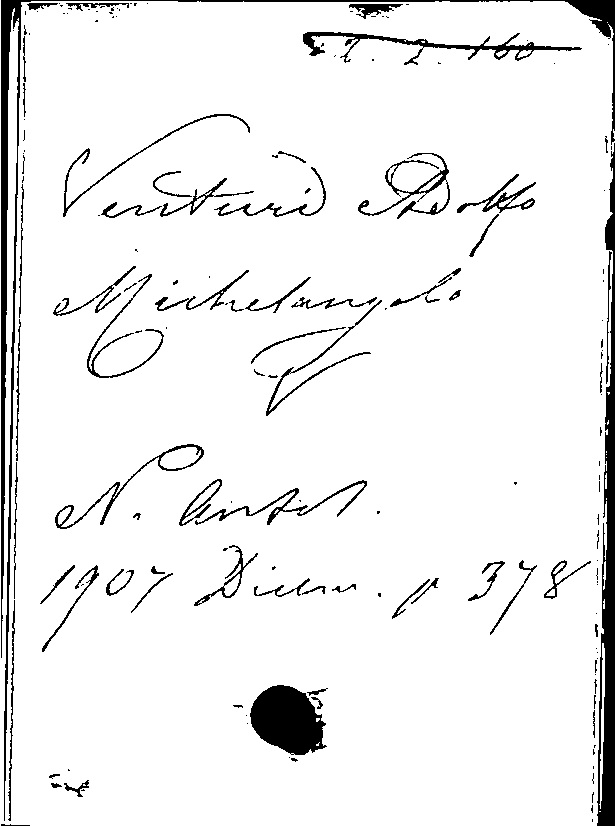 2. 160
Venturi Adolfo
Michelangelo
N. Antol.
1907 Dicem. p 378